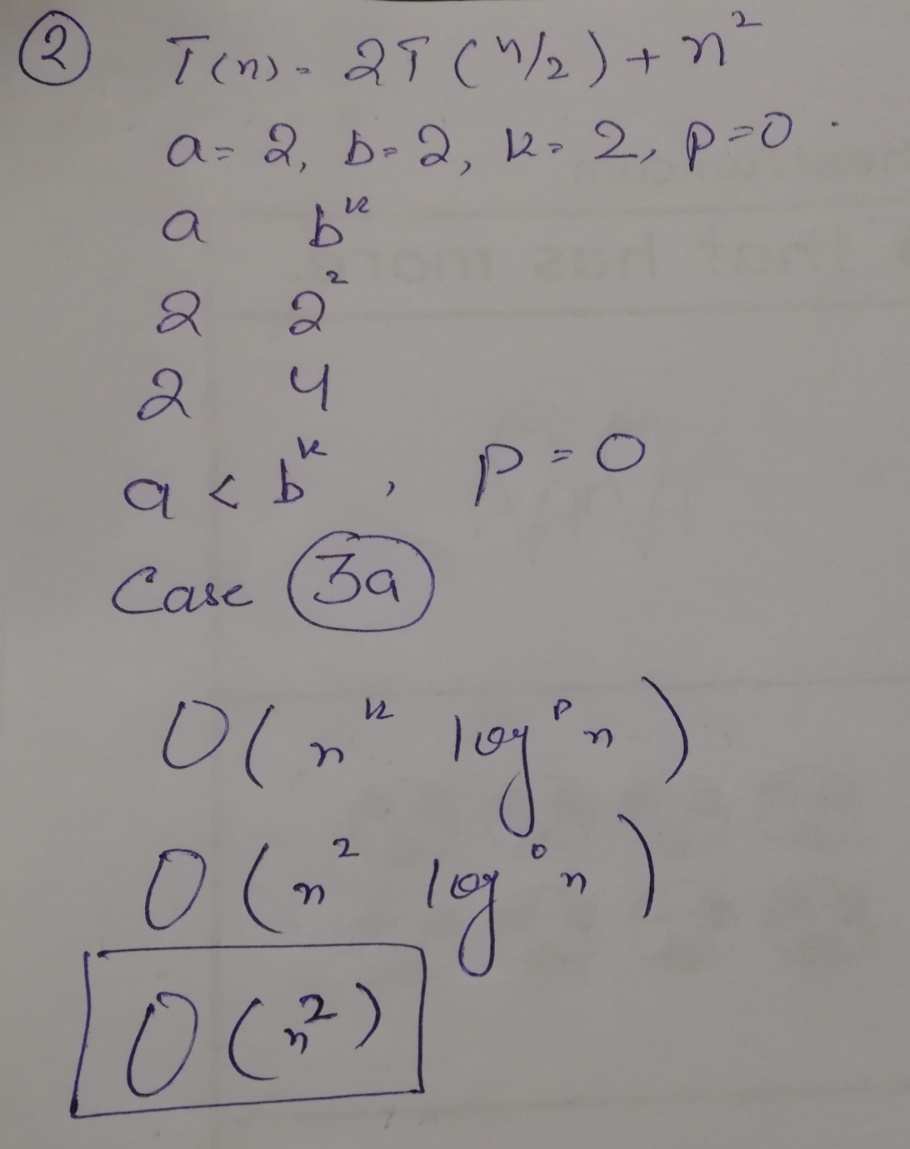 ② T(n) = 2T(n/2) + n²
a = 2, b = 2, k = 2, p = 0.
a b^k
2 2²
2 4
a < b^k, p = 0
Case 3a
O(n^k log^p n)
O(n² log⁰ n)
O(n²)